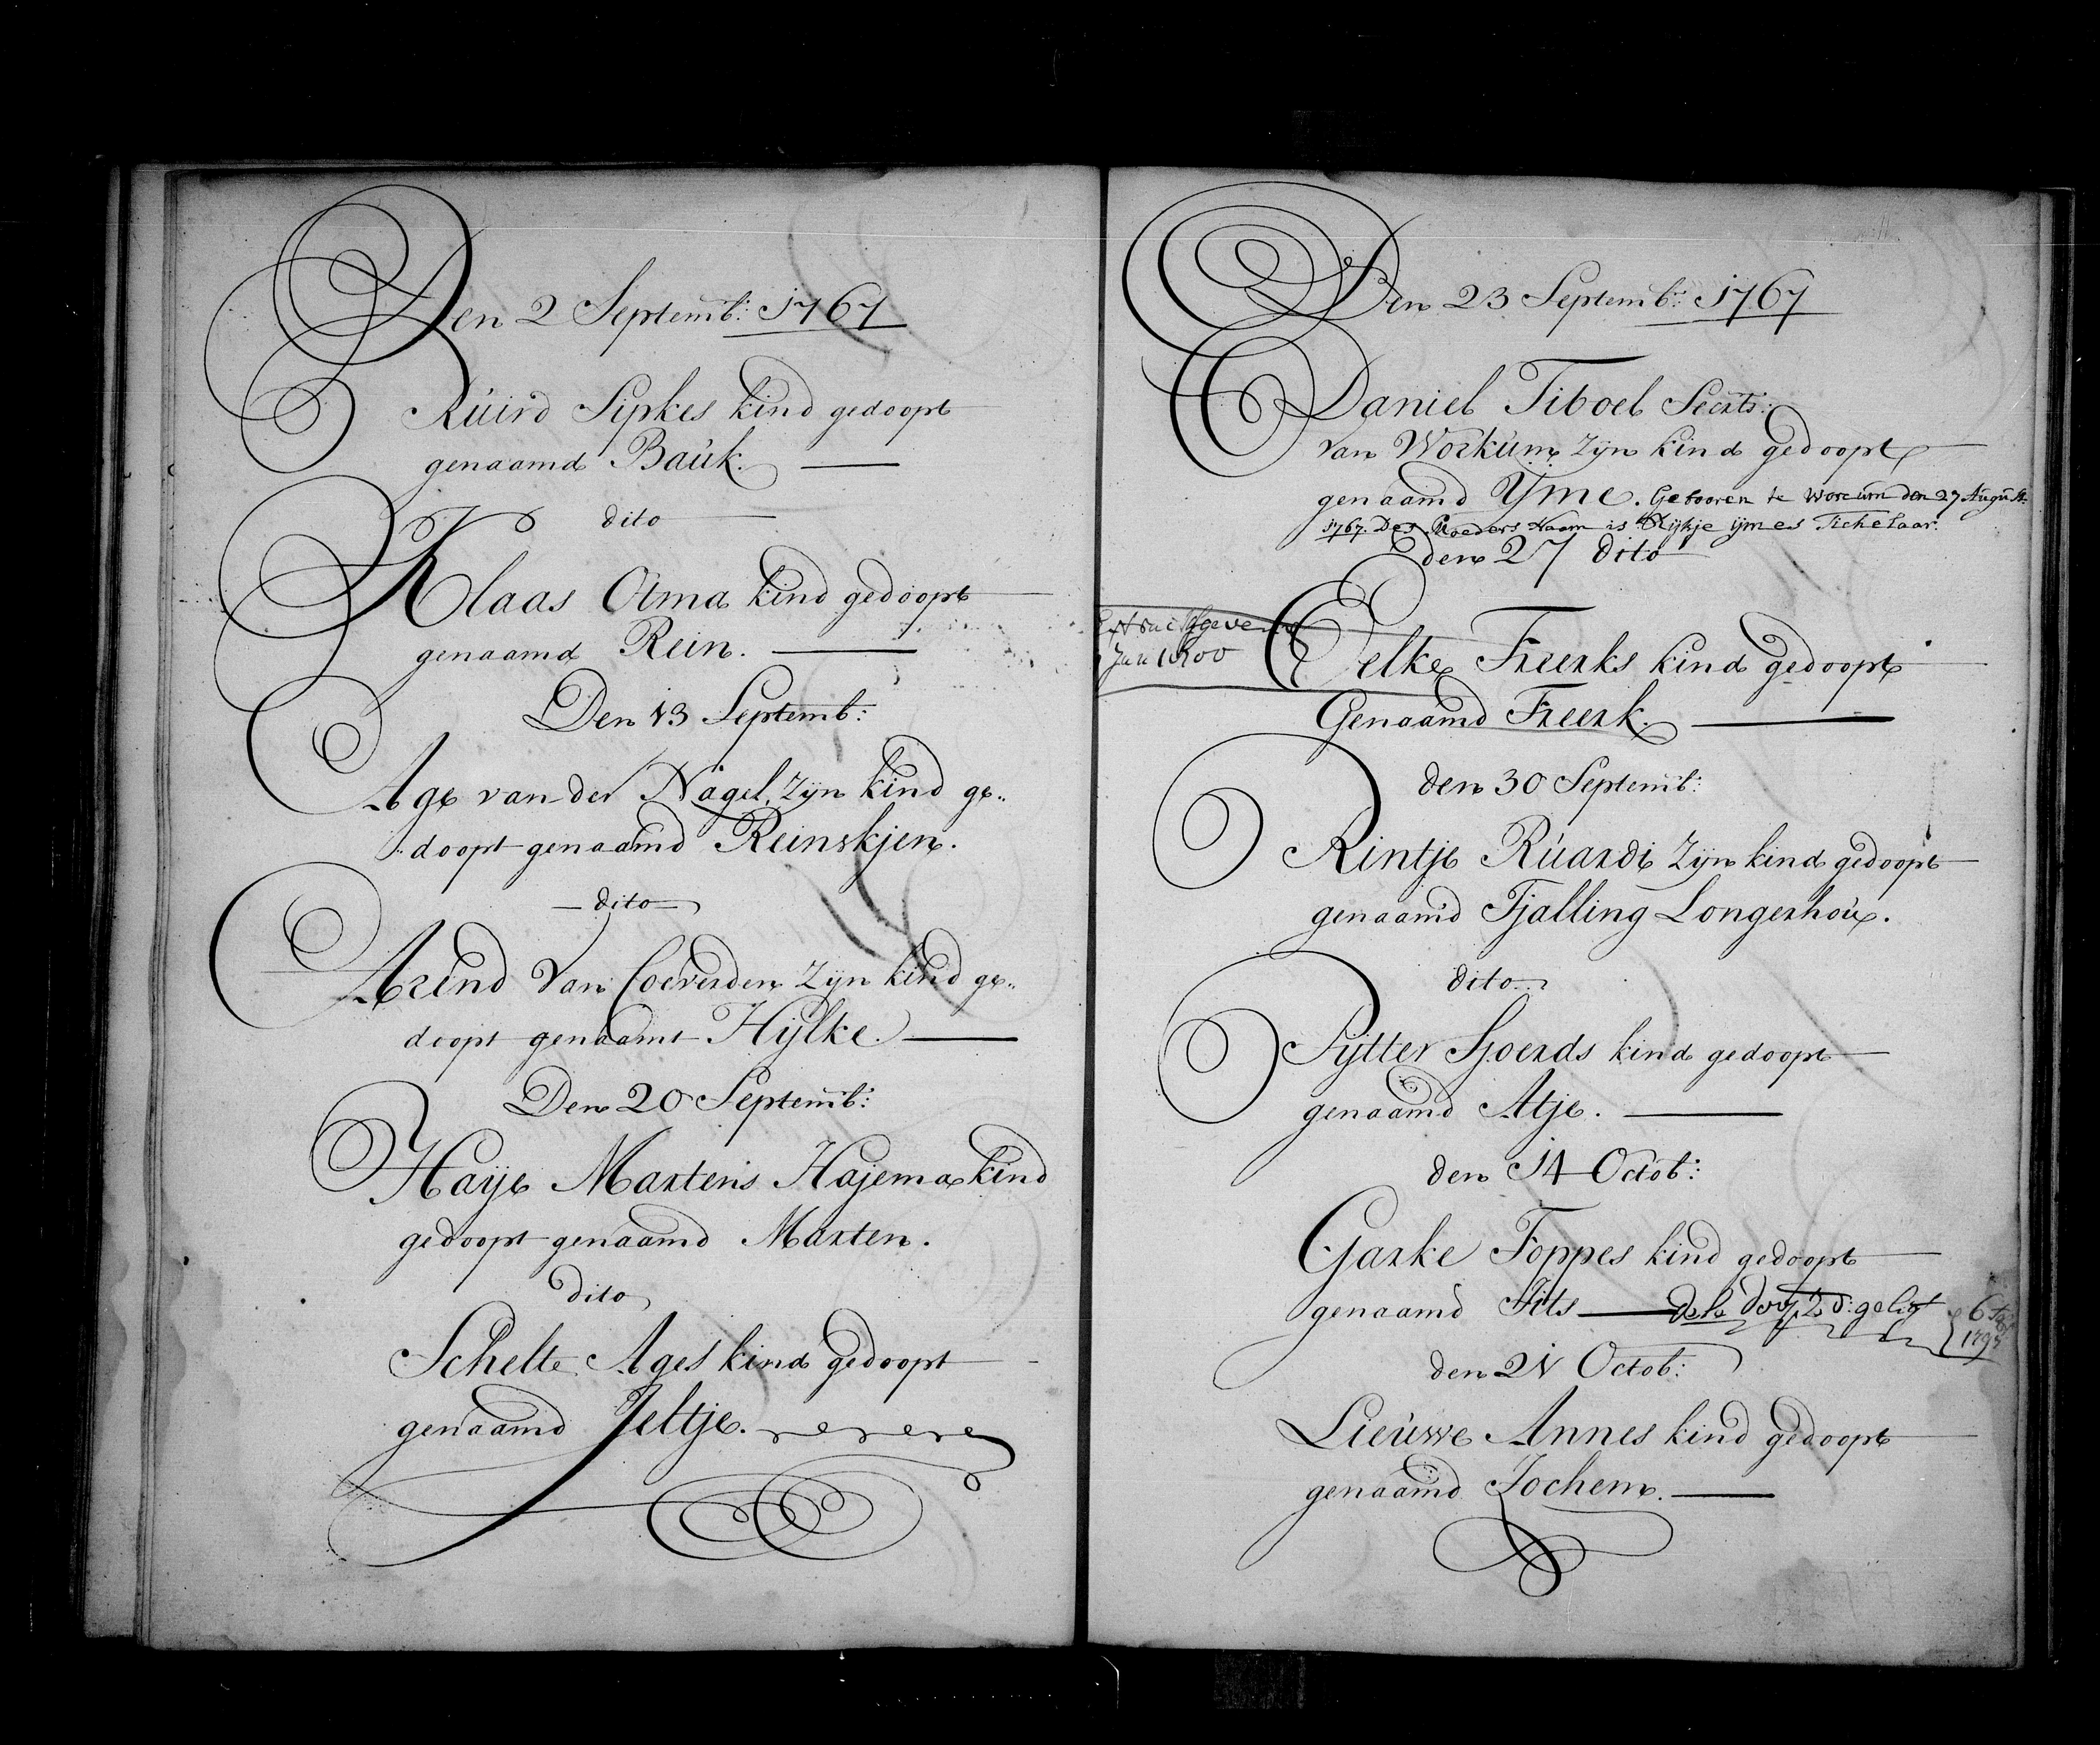 Den 2 Septemb: 1767
Ruird Sipkes kind gedoopt
genaamd Bauk.
dito
Klaas Atma kind gedoopt
genaamd Rein.
Den 13 Septemb:
Age van der Nagel, zijn kind ge„
doopt genaamd Reinskjen.
dito
Arend van Coeverden zijn kind ge„
doopt genaamt Hylke.
Den 20 Septemb:
Haye Martens Hajema kind
gedoopt genaamd Marten.
dito
Schelte Ages kind gedoopt
genaamd Jeltje.
Den 23 Septemb: 1767
Daniel Tiboel
van Workum zijn kind gedoopt
genaamd Yme. Gebooren te Worcum den 27 August:
1767. Des Moeders Naam is Rykje ijmes Tichelaar.
den 27 dito
Eelke Freerks kind gedoopt
Genaamd Freerk.
1800
den 30 Septemb:
Rintje Ruardi zijn kind gedoopt
genaamd Tjalling Longerhou.
dito
Pytter Sjoerds kind gedoopt
genaamd Atje.
den 14 Octob:
Garke Foppes kind gedoopt
genaamd Fits
den 21 Octob:
Lieuwe Annes kind gedoopt
genaamd Jochem.